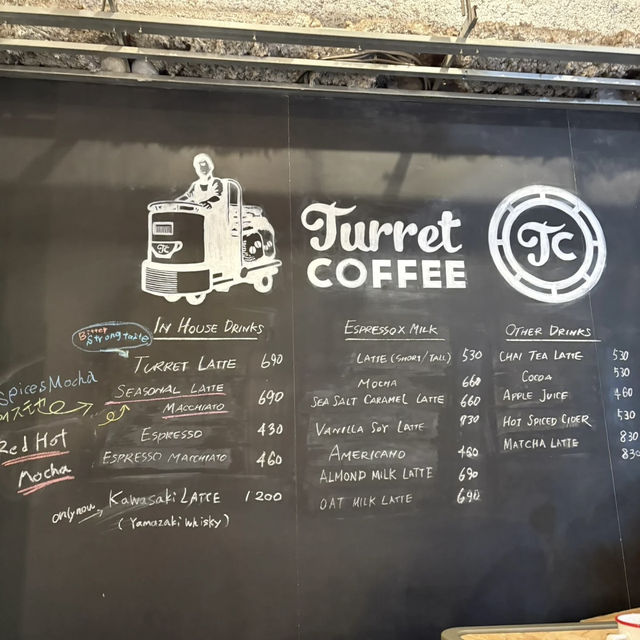 Turret
COFFEE
TC
IN HOUSE DRINKS
Bitter
Strong taste
TURRET LATTE 690
SEASONAL LATTE
MACCHIATO 690
Spices Mocha
Red Hot
Mocha
ESPRESSO 430
ESPRESSO MACCHIATO 460
only now
KAWASAKI LATTE 1200
(Yamazaki whisky)
ESPRESSO X MILK
LATTE (SHORT/TALL) 530
MOCHA 660
SEA SALT CARAMEL LATTE 660
VANILLA SOY LATTE 730
AMERICANO 460
ALMOND MILK LATTE 690
OAT MILK LATTE 690
OTHER DRINKS
CHAI TEA LATTE 530
COCOA 530
APPLE JUICE 460
HOT SPICED CIDER 530
MATCHA LATTE 830
830